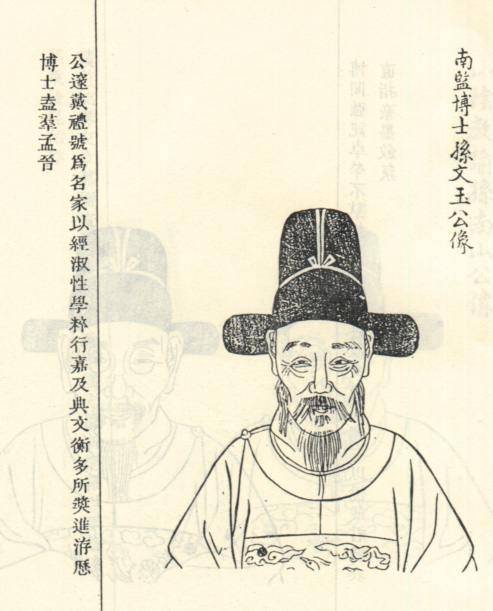 南監博士孫文玉公像
公邃戴禮號爲名家以經淑性學粹行嘉及典文衡多所奬進洊歷
博士盍羣孟晉